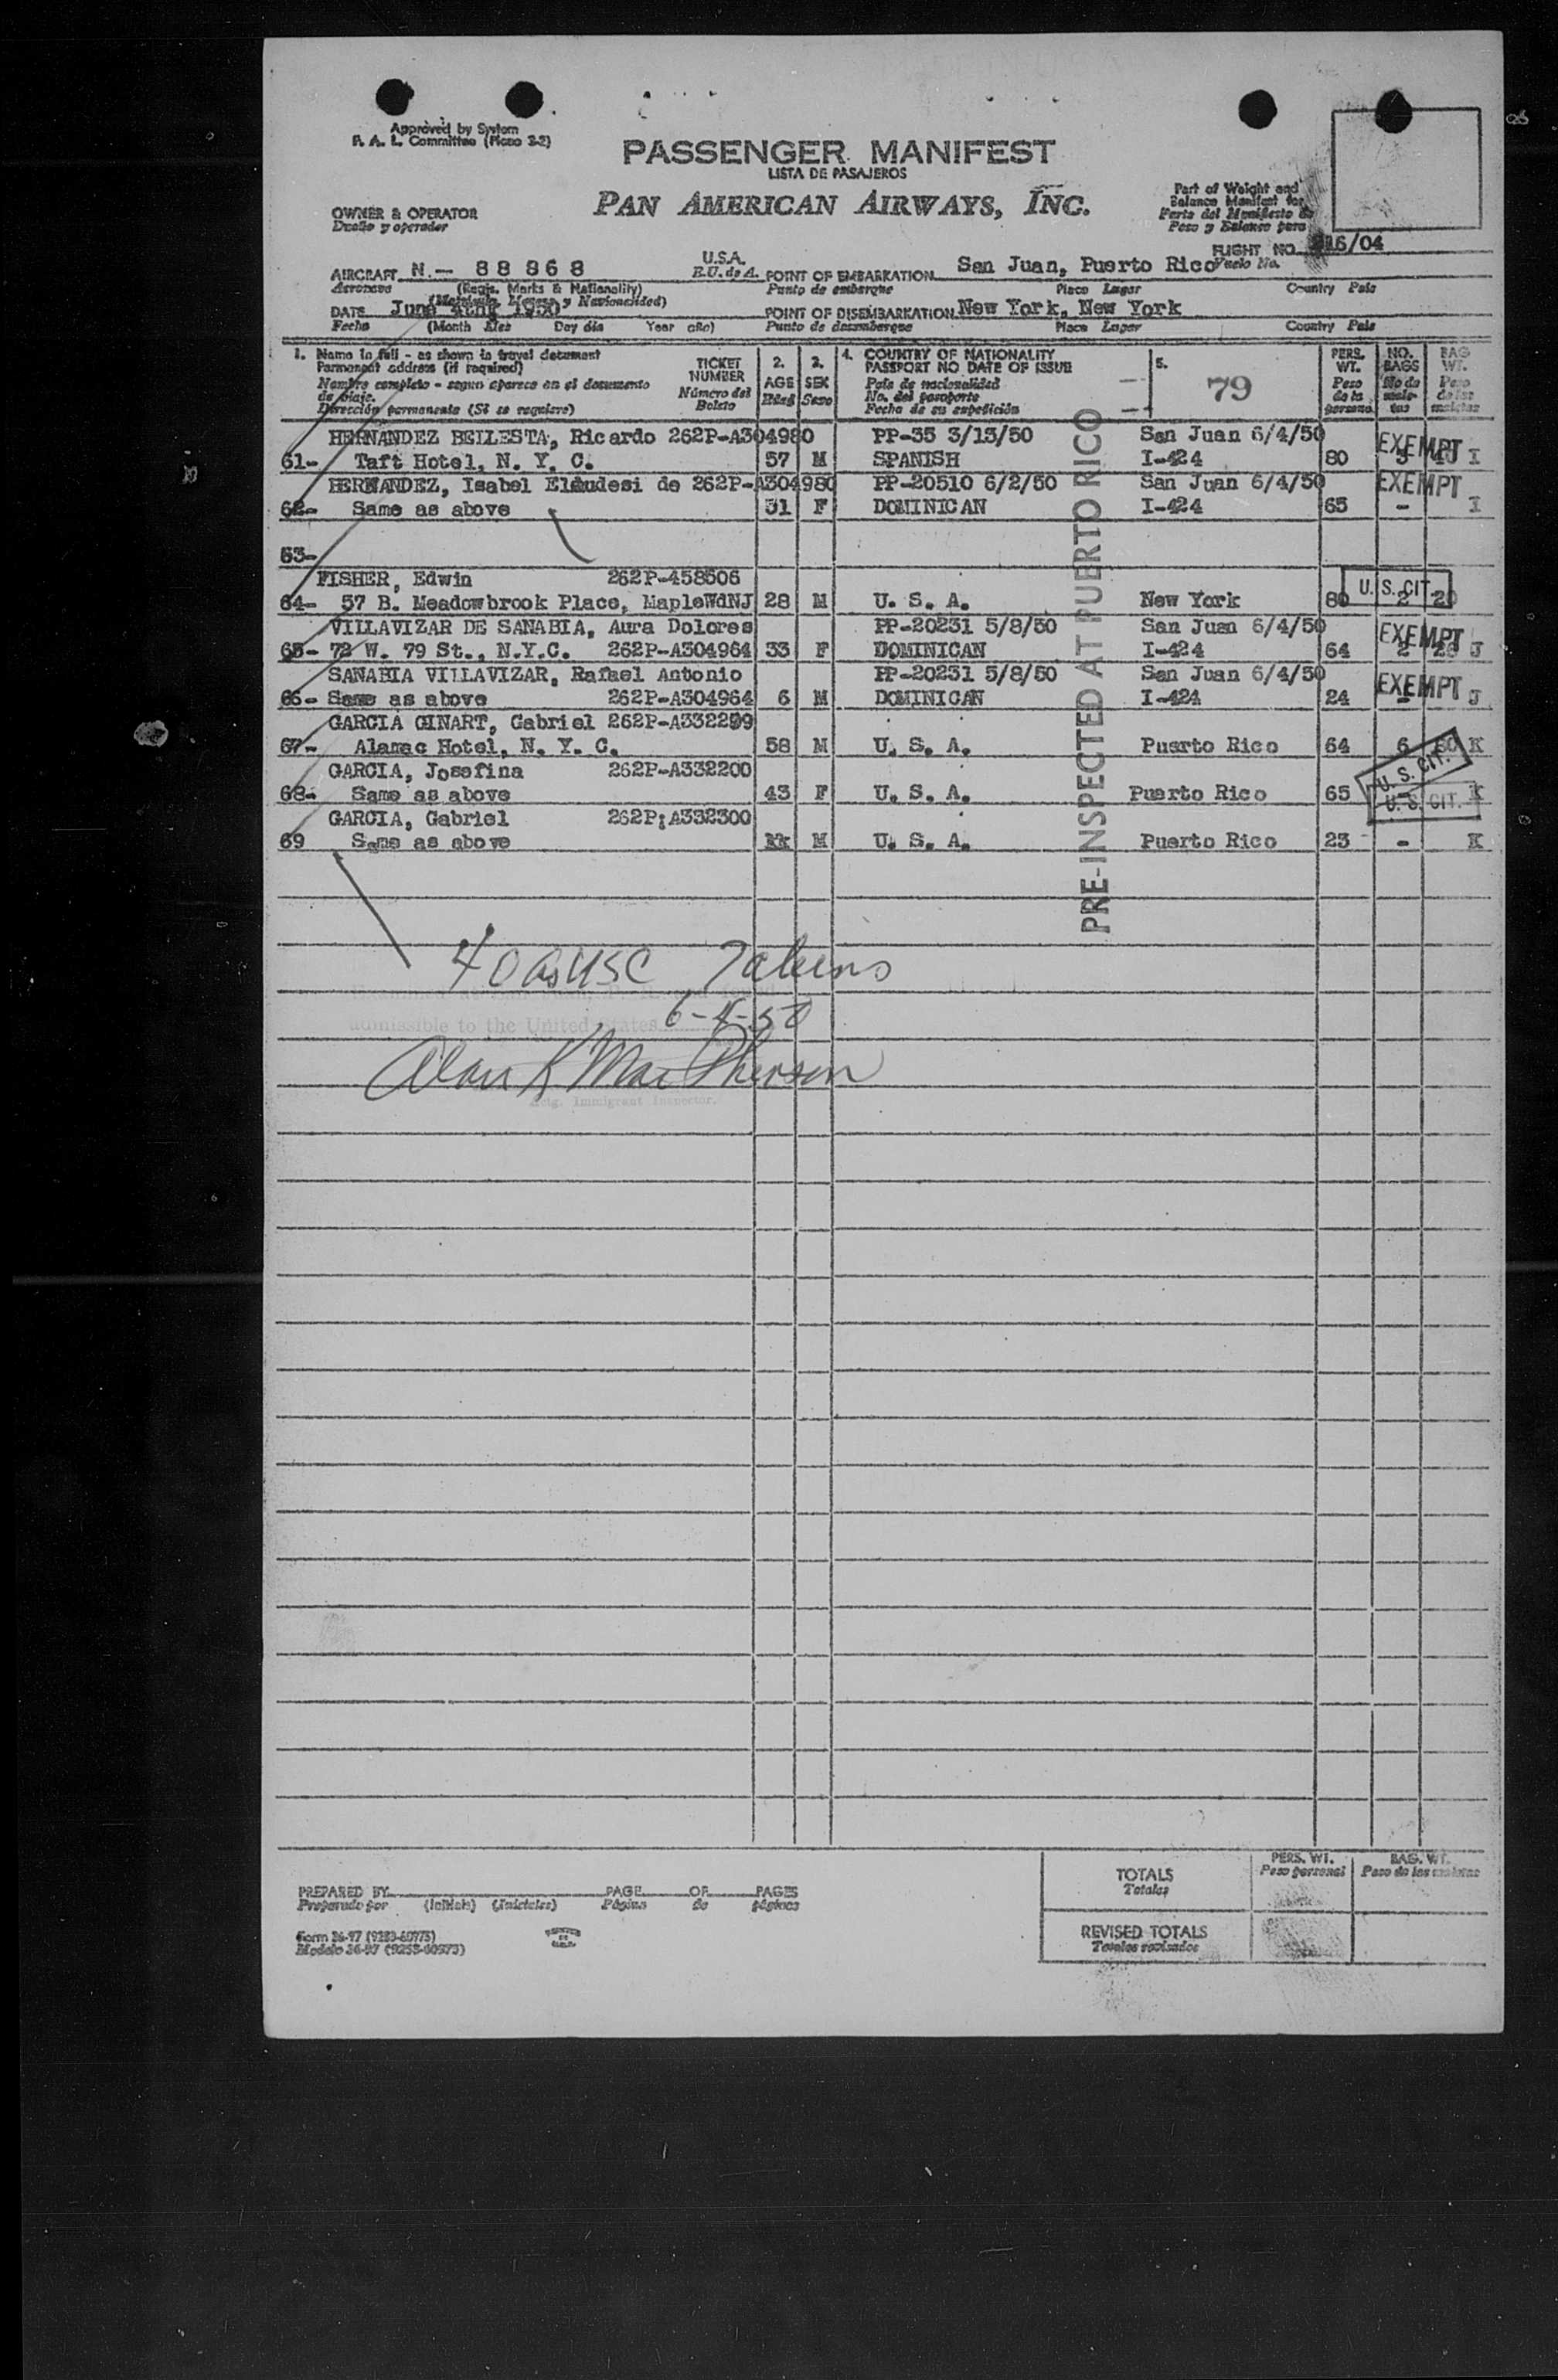 Approved by System
P. A. L. Committee (Plano 3-2)
PASSENGER MANIFEST
LISTA DE PASAJEROS
PAN AMERICAN AIRWAYS, INC.
OWNER & OPERATOR
Dueño y operador
Part of Weight and
Balance Manifest for
Parte del Manifiesto de
Peso y Balance para
FLIGHT NO. 216/04
Vuelo No.
AIRCRAFT N.- 88868 U.S.A.
Aeronave (Regis. Marks & Nationality) E.U. de A.
POINT OF EMBARKATION San Juan, Puerto Rico
Punto de embarque Place Lugar Country País
DATE June 4th, 1950
Fecha (Month Mes Day día Year año)
POINT OF DISEMBARKATION New York, New York
Punto de desembarque Place Lugar Country País
1. Name in full - as shown in travel document
Permanent address (if required)
Nombre completo - segun aparece en el documento
de viaje.
Dirección permanente (Si se requiere)
TICKET NUMBER
Número del Boleto
2. AGE Edad
3. SEX Sexo
4. COUNTRY OF NATIONALITY
PASSPORT NO. DATE OF ISSUE
País de nacionalidad
No. del pasaporte
Fecha de su expedición
5. 79
PERS. WT. Peso de la persona
NO. BAGS No de maletas
BAG WT. Peso de las maletas
HERNANDEZ BELLESTA, Ricardo 262P-A304980 PP-35 3/13/50 San Juan 6/4/50 EXEMPT
61- Taft Hotel, N. Y. C. 57 M SPANISH I-424 80 3 I
HERNANDEZ, Isabel de 262P-A304980 PP-20510 6/2/50 San Juan 6/4/50 EXEMPT
62- Same as above 31 F DOMINICAN I-424 65 - I
63-
FISHER, Edwin 262P-458506 U. S. CIT.
64- 57 B. Meadowbrook Place, MapleWdNJ 28 M U. S. A. New York 80 2 20
VILLAVIZAR DE SANABIA, Aura Dolores PP-20231 5/8/50 San Juan 6/4/50 EXEMPT
65- 72 W. 79 St., N.Y.C. 262P-A304964 33 F DOMINICAN I-424 64 2 J
SANABIA VILLAVIZAR, Rafael Antonio PP-20231 5/8/50 San Juan 6/4/50 EXEMPT
66- Same as above 262P-A304964 6 M DOMINICAN I-424 24 - J
GARCIA GINART, Gabriel 262P-A332299
67- Alamac Hotel, N. Y. C. 58 M U. S. A. Puerto Rico 64 6 K
GARCIA, Josefina 262P-A332200 U. S. CIT.
68- Same as above 43 F U. S. A. Puerto Rico 65 U. S. CIT. K
GARCIA, Gabriel 262P;A332300
69 Same as above M U. S. A. Puerto Rico 23 - K
PRE-INSPECTED AT PUERTO RICO
4 0 as USC
admissible to the United States 6-4-50
Alan K MacPherson
Immigrant Inspector.
PREPARED BY PAGE OF PAGES
Preparado por (Initials) (Iniciales) Página de páginas
TOTALS
Totales
PERS. WT.
Peso personal
BAG. WT.
Peso de las maletas
REVISED TOTALS
Totales revisados